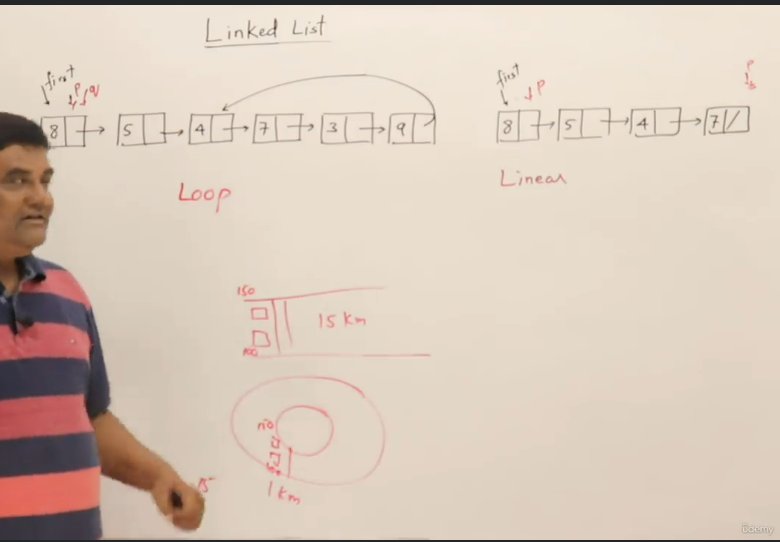 Linked List
first
p q
8 5 4 7 3 9
Loop
first
p
p
8 5 4 7 /
Linear
150
15 Km
100
110
1 Km
15
ûdemy